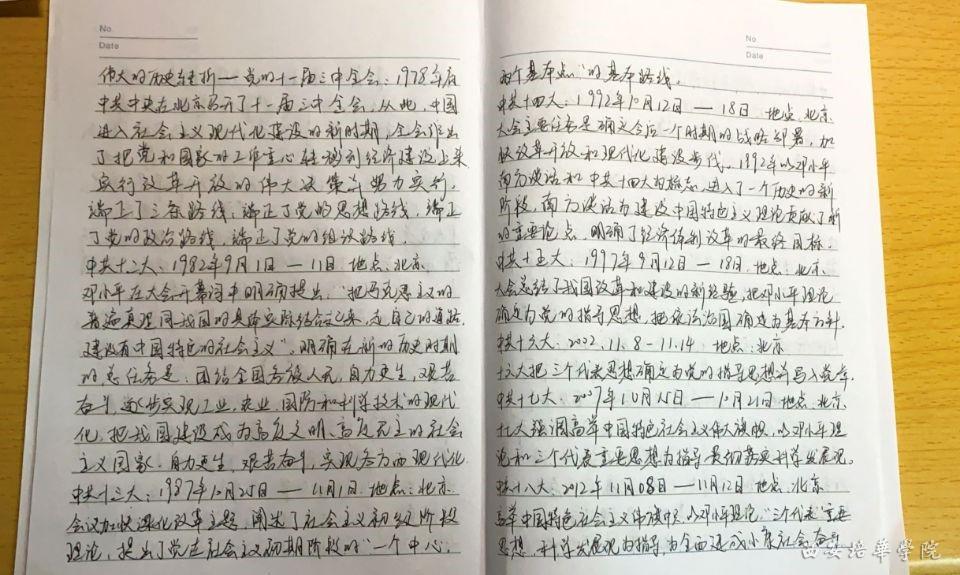 No.
Date
伟大的历史转折——党的十一届三中全会：1978年底
中共中央在北京召开了十一届三中全会，从此，中国
进入社会主义现代化建设的新时期，全会作出
了把党和国家的工作重心转移到经济建设上来
实行改革开放的伟大决策并努力实行，
端正了三条路线，端正了党的思想路线，端正
了党的政治路线，端正了党的组织路线.
中共十二大：1982年9月1日—11日 地点：北京.
邓小平在大会开幕词中明确提出，“把马克思主义的
普遍真理同我国的具体实际结合起来，走自己的道路，
建设有中国特色的社会主义”.明确在新的历史时期
的总任务是：团结全国各族人民，自力更生，艰苦
奋斗，逐步实现工业，农业，国防和科学技术的现代
化，把我国建设成为高度文明、高度民主的社会
主义国家.自力更生，艰苦奋斗，实现各方面现代化
中共十三大：1987年10月25日——11月1日.地点：北京.
会议加快深化改革主题，阐述了社会主义初级阶段
理论，提出了党在社会主义初期阶段的“一个中心，
No.
Date
两个基本点”的基本路线.
中共十四大：1992年10月12日—18日 地点：北京
大会主要任务是确定今后一个时期的战略部署，加
快改革开放和现代化建设步伐.1992年以邓小平
南方谈话和中共十四大为标志，进入了一个历史的新
阶段，南方谈话为建设中国特色主义理论贡献了新
的重要论点，明确了经济体制改革的最终目标.
中共十五大：1997年9月12日—18日.地点：北京.
大会总结了我国改革和建设的新经验，把邓小平理论
确定为党的指导思想，把依法治国确定为基本方针.
中共十六大：2002.11.8-11.14.地点：北京
十六大把三个代表思想确定为党的指导思想并写入党章.
中共十七大：2007年10月15日—10月21日 地点：北京.
十七大强调高举中国特色社会主义伟大旗帜，以邓小平理
论和三个代表重要思想为指导 贯彻落实科学发展观.
中共十八大：2012年11月08日——11月12日 地点：北京
高举中国特色社会主义伟大旗帜，以邓小平理论，“三个代表”重要
思想，科学发展观为指导 为全面建成小康社会奋斗
西安培華學院